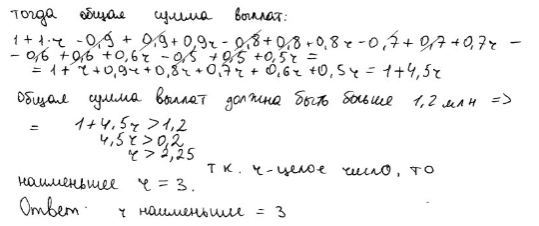 тогда общая сумма выплат:
1+1·r-0,9+0,9+0,9r-0,8+0,8+0,8r-0,7+0,7+0,7r-
-0,6+0,6+0,6r-0,5+0,5+0,5r=
=1+r+0,9r+0,8r+0,7r+0,6r+0,5r=1+4,5r
Общая сумма выплат должна быть больше 1,2 млн =>
= 1+4,5r>1,2
4,5r>0,2
r>2,25
т.к. r-целое число, то
наименьшее r=3.
Ответ: r наименьшие = 3